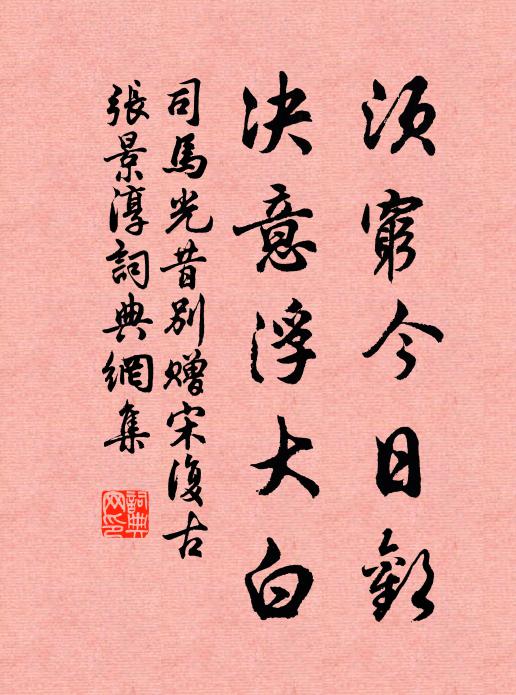 須窮今日歡
决意浮大白
司馬光昔別贈宋復古
張景淳詞典網集
詞典網印